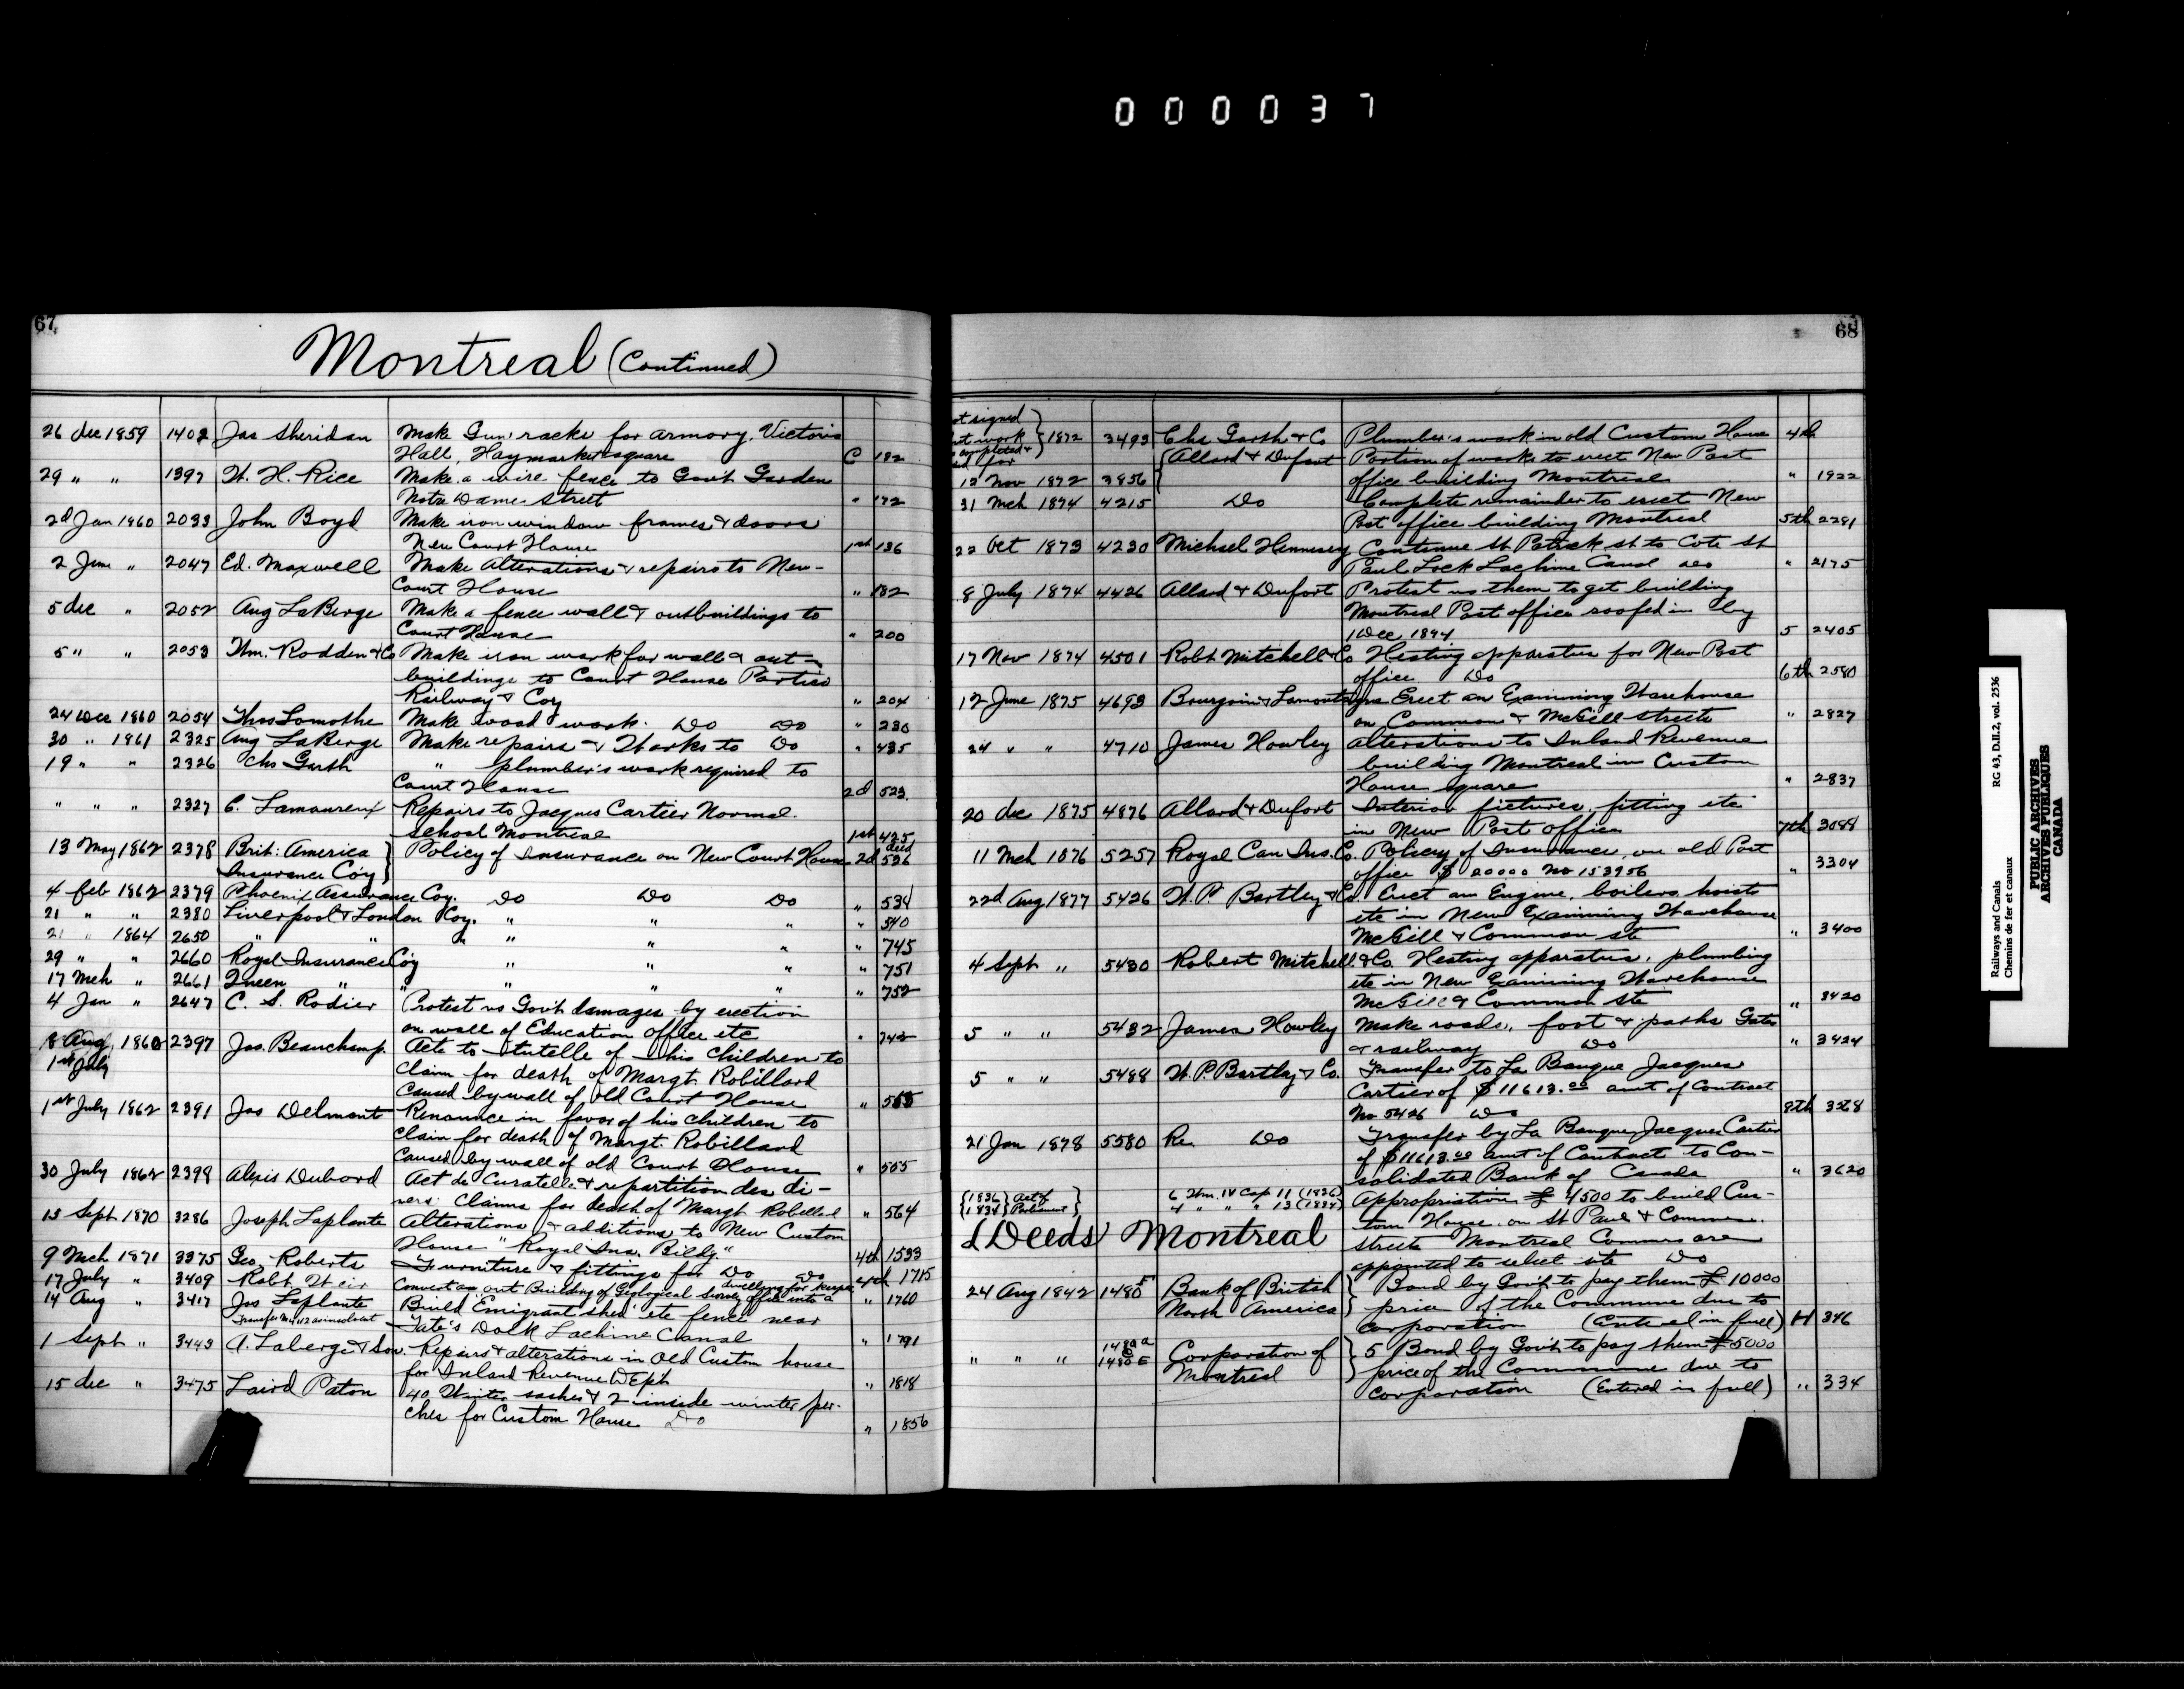 000037
67
Montreal (Continued)
26 dec 1859 1402 Jas Sheridan Make Gun racks for armory, Victoria
Hall, Haymarket square C 182
29 " " 1397 W. H. Rice Make a wire fence to Gov't Garden
Notre Dame street " 172
2d Jan 1860 2033 John Boyd Make iron window frames & doors
New Court House 1st 136
2 June " 2047 Ed. Maxwell Make Alterations & repairs to New-
Court House " 182
5 dec " 2052 Aug LaBerge Make a fence wall & outbuildings to
Court House " 200
5 " " 2053 Wm. Rodden & Co Make iron work for wall & out-
buildings to Court House Portico
Railway & Coy " 204
24 Dec 1860 2054 Thos Lamothe Make wood work. Do Do " 230
30 " 1861 2325 Aug LaBerge Make repairs & Works to Do " 435
19 " " 2326 Chs Garth " plumber's work required to
Court House 2d 523
" " " 2327 C. Lamoureux Repairs to Jacques Cartier Normal
School Montreal 1st 425
13 May 1862 2378 Brit: America Policy of Insurance on New Court House 2d 536
Insurance Co'y
4 feb 1862 2379 Phoenix Assurance Coy. Do Do Do " 534
21 " " 2380 Liverpool & London Coy. " " " " 540
21 " 1864 2650 " " " " " " " 745
29 " " 2660 Royal Insurance Coy " " " " 751
17 Mch " 2661 Queen " " " " " " 752
4 Jan " 2647 C. S. Rodier Protest vs Gov't damages by erection
on wall of Education Office etc " 742
8 Aug 1860 2397 Jas. Beauchamp. Acte to tutelle of his children to
1st July claim for death of Margt. Robillard
caused by wall of old Court House " 565
1st July 1862 2391 Jas Delmont Renounce in favor of his children to
claim for death of Margt. Robillard
caused by wall of old Court House " 555
30 July 1862 2399 Alexis Dubord Act de Curatelle & repartition des di-
vers claims for death of Margt Robillard " 564
15 Sept 1870 3286 Joseph Laplante Alterations & additions to New Custom
House "Royal Ins. Bildg." 4th 1533
9 Mch 1871 3375 Geo. Roberts Furniture & fittings for Do Do 4th 1715
dwelling for keeper
17 July " 3409 Robt. Weir Convert an out Building of Geological Survey office into a " 1760
14 Aug " 3417 Jos Laplante Build Emigrant shed etc fence near
Tate's Dock Lachine Canal " 1791
1 Sept " 3443 A. Laberge & Son. Repairs & alterations in Old Custom house
for Inland Revenue Dept " 1818
15 dec " 3475 Laird Paton 40 Winter sashes & 2 inside winter por-
ches for Custom House Do " 1856
68
signed
work 1872 3493 Chs. Garth & Co Plumber's work in old Custom House 4th
completed &
for Allard & Dufort Portion of works to erect New Post
12 Nov 1872 3856 office building Montreal " 1922
31 Mch 1874 4215 Do Complete remainder to erect New
Post office building Montreal 5th 2281
22 Oct 1873 4230 Michael Hennesey Continue St Patrick st to Cote St
Paul Lock Lachine Canal " 2175
8 July 1874 4426 Allard & Dufort Protest vs them to get building
Montreal Post office roofed in by
1 Dec 1874 5 2405
17 Nov 1874 4501 Robt Mitchell & Co Heating apparatus for New Post
office Do 6th 2580
12 June 1875 4693 Bourgoin & Lamontagne Erect an Examining Warehouse
on Common & McGill streets " 2827
24 " " 4710 James Howley Alterations to Inland Revenue
building Montreal in Custom
House square " 2837
20 dec 1875 4876 Allard & Dufort Interior fixtures, fitting etc
in New Post office 7th 3088
11 Mch 1876 5257 Royal Can Ins. Co. Policy of Insurance on old Post
office $ 20000 No 153956 " 3304
22d Aug 1877 5426 W. P. Bartley & Co. Erect an Engine, boilers, hoists
etc in New Examining Warehouse
McGill & Common sts " 3400
4 Sept " 5430 Robert Mitchell & Co. Heating apparatus, plumbing
etc in New Examining Warehouse
McGill & Common Sts " 3420
5 " " 5432 James Howley Make roads, foot & paths Gates
& railway Do " 3424
5 " " 5488 W. P. Bartley & Co. Transfer to La Banque Jacques
Cartier of $11613.00 amt of Contract
No 5426 Do 8th 3528
21 Jan 1878 5580 Re. Do Transfer by La Banque Jacques Cartier
of $11613.00 amt of Contract to Con-
solidated Bank of Canada " 3620
1836 Act of 6 Wm. IV Cap 11 (1836) Appropriation £ 4500 to build Cus-
1834 Parliament 4 " " " 13 (1834) tom House on St Paul & Common
(Deeds) Montreal streets Montreal Commrs are
appointed to select site Do
24 Aug 1842 1480 Bank of British Bond by Gov't to pay them £ 10000
North America price of the Commune due to
corporation (Entered in full) H 346
1480 a
" " " 1480 E Corporation of 5 Bond by Gov't to pay them £ 5000
Montreal price of the Commune due to
Corporation (Entered in full) " 334
Railways and Canals RG 43, D.II.2, vol. 2536
Chemins de fer et canaux
PUBLIC ARCHIVES
ARCHIVES PUBLIQUES
CANADA